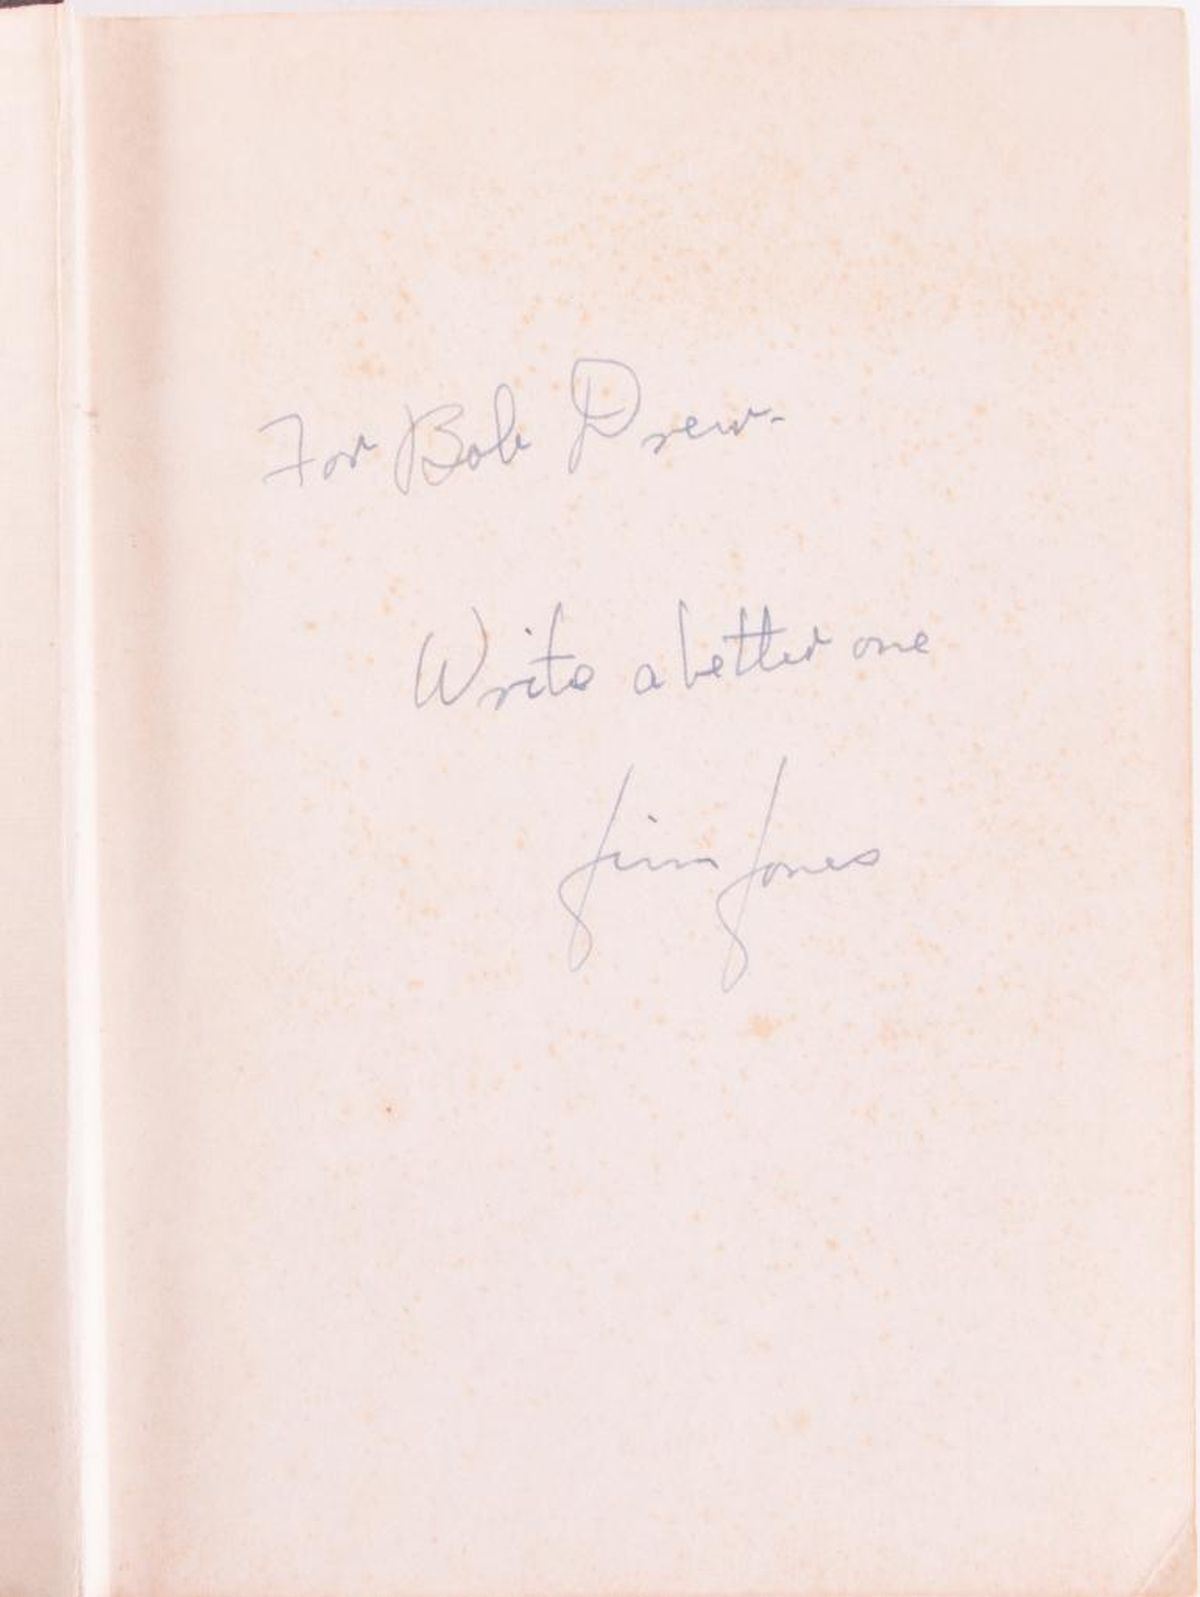 For Bob Drew-
Write a better one
Jim Jones